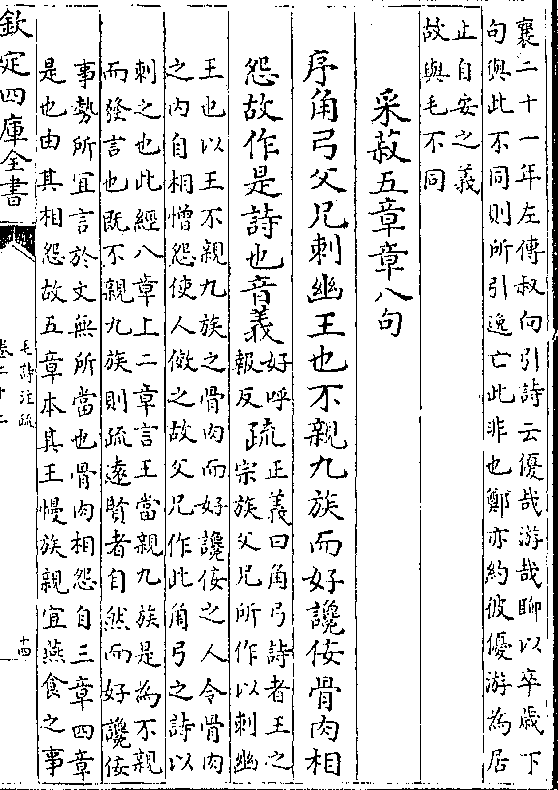 襄二十一年左傳叔向引詩云優哉游哉聊以卒歲下
句與此不同則所引逸亡此非也鄭亦約彼優游為居
止自安之義
故與毛不同
采菽五章章八句
序角弓父兄刺幽王也不親九族而好讒佞骨肉相
怨故作是詩也音義好呼報反疏正義曰角弓詩者王之宗族父兄所作以刺幽
王也以王不親九族之骨肉而好讒佞之人令骨肉
之内自相憎怨使人傚之故父兄作此角弓之詩以
刺之也此經八章上二章言王當親九族是為不親
而發言也既不親九族則疏遠賢者自然而好讒佞
事勢所宜言於文無所當也骨肉相怨自三章四章
是也由其相怨故五章本其王慢族親宜燕食之事
欽定四庫全書
毛詩注疏
卷二十二
十四